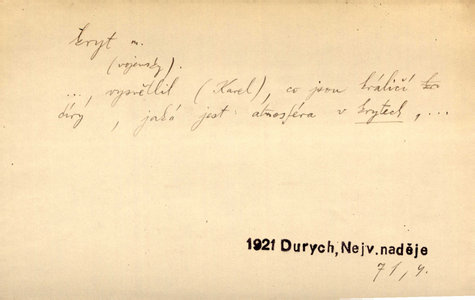 kryt m.
(vojenský).
..., vysvětlil (Karel), co jsou králičí ko-
díry, jaká jest atmosféra v krytech, ...
1921 Durych, Nejv. naděje
71, 4.